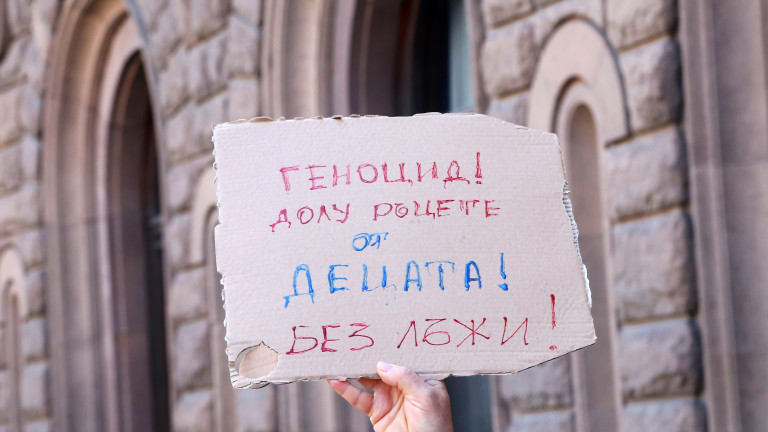 ГЕНОЦИД!
ДОЛУ РЪЦЕТЕ
ОТ
ДЕЦАТА!
БЕЗ ЛЪЖИ!